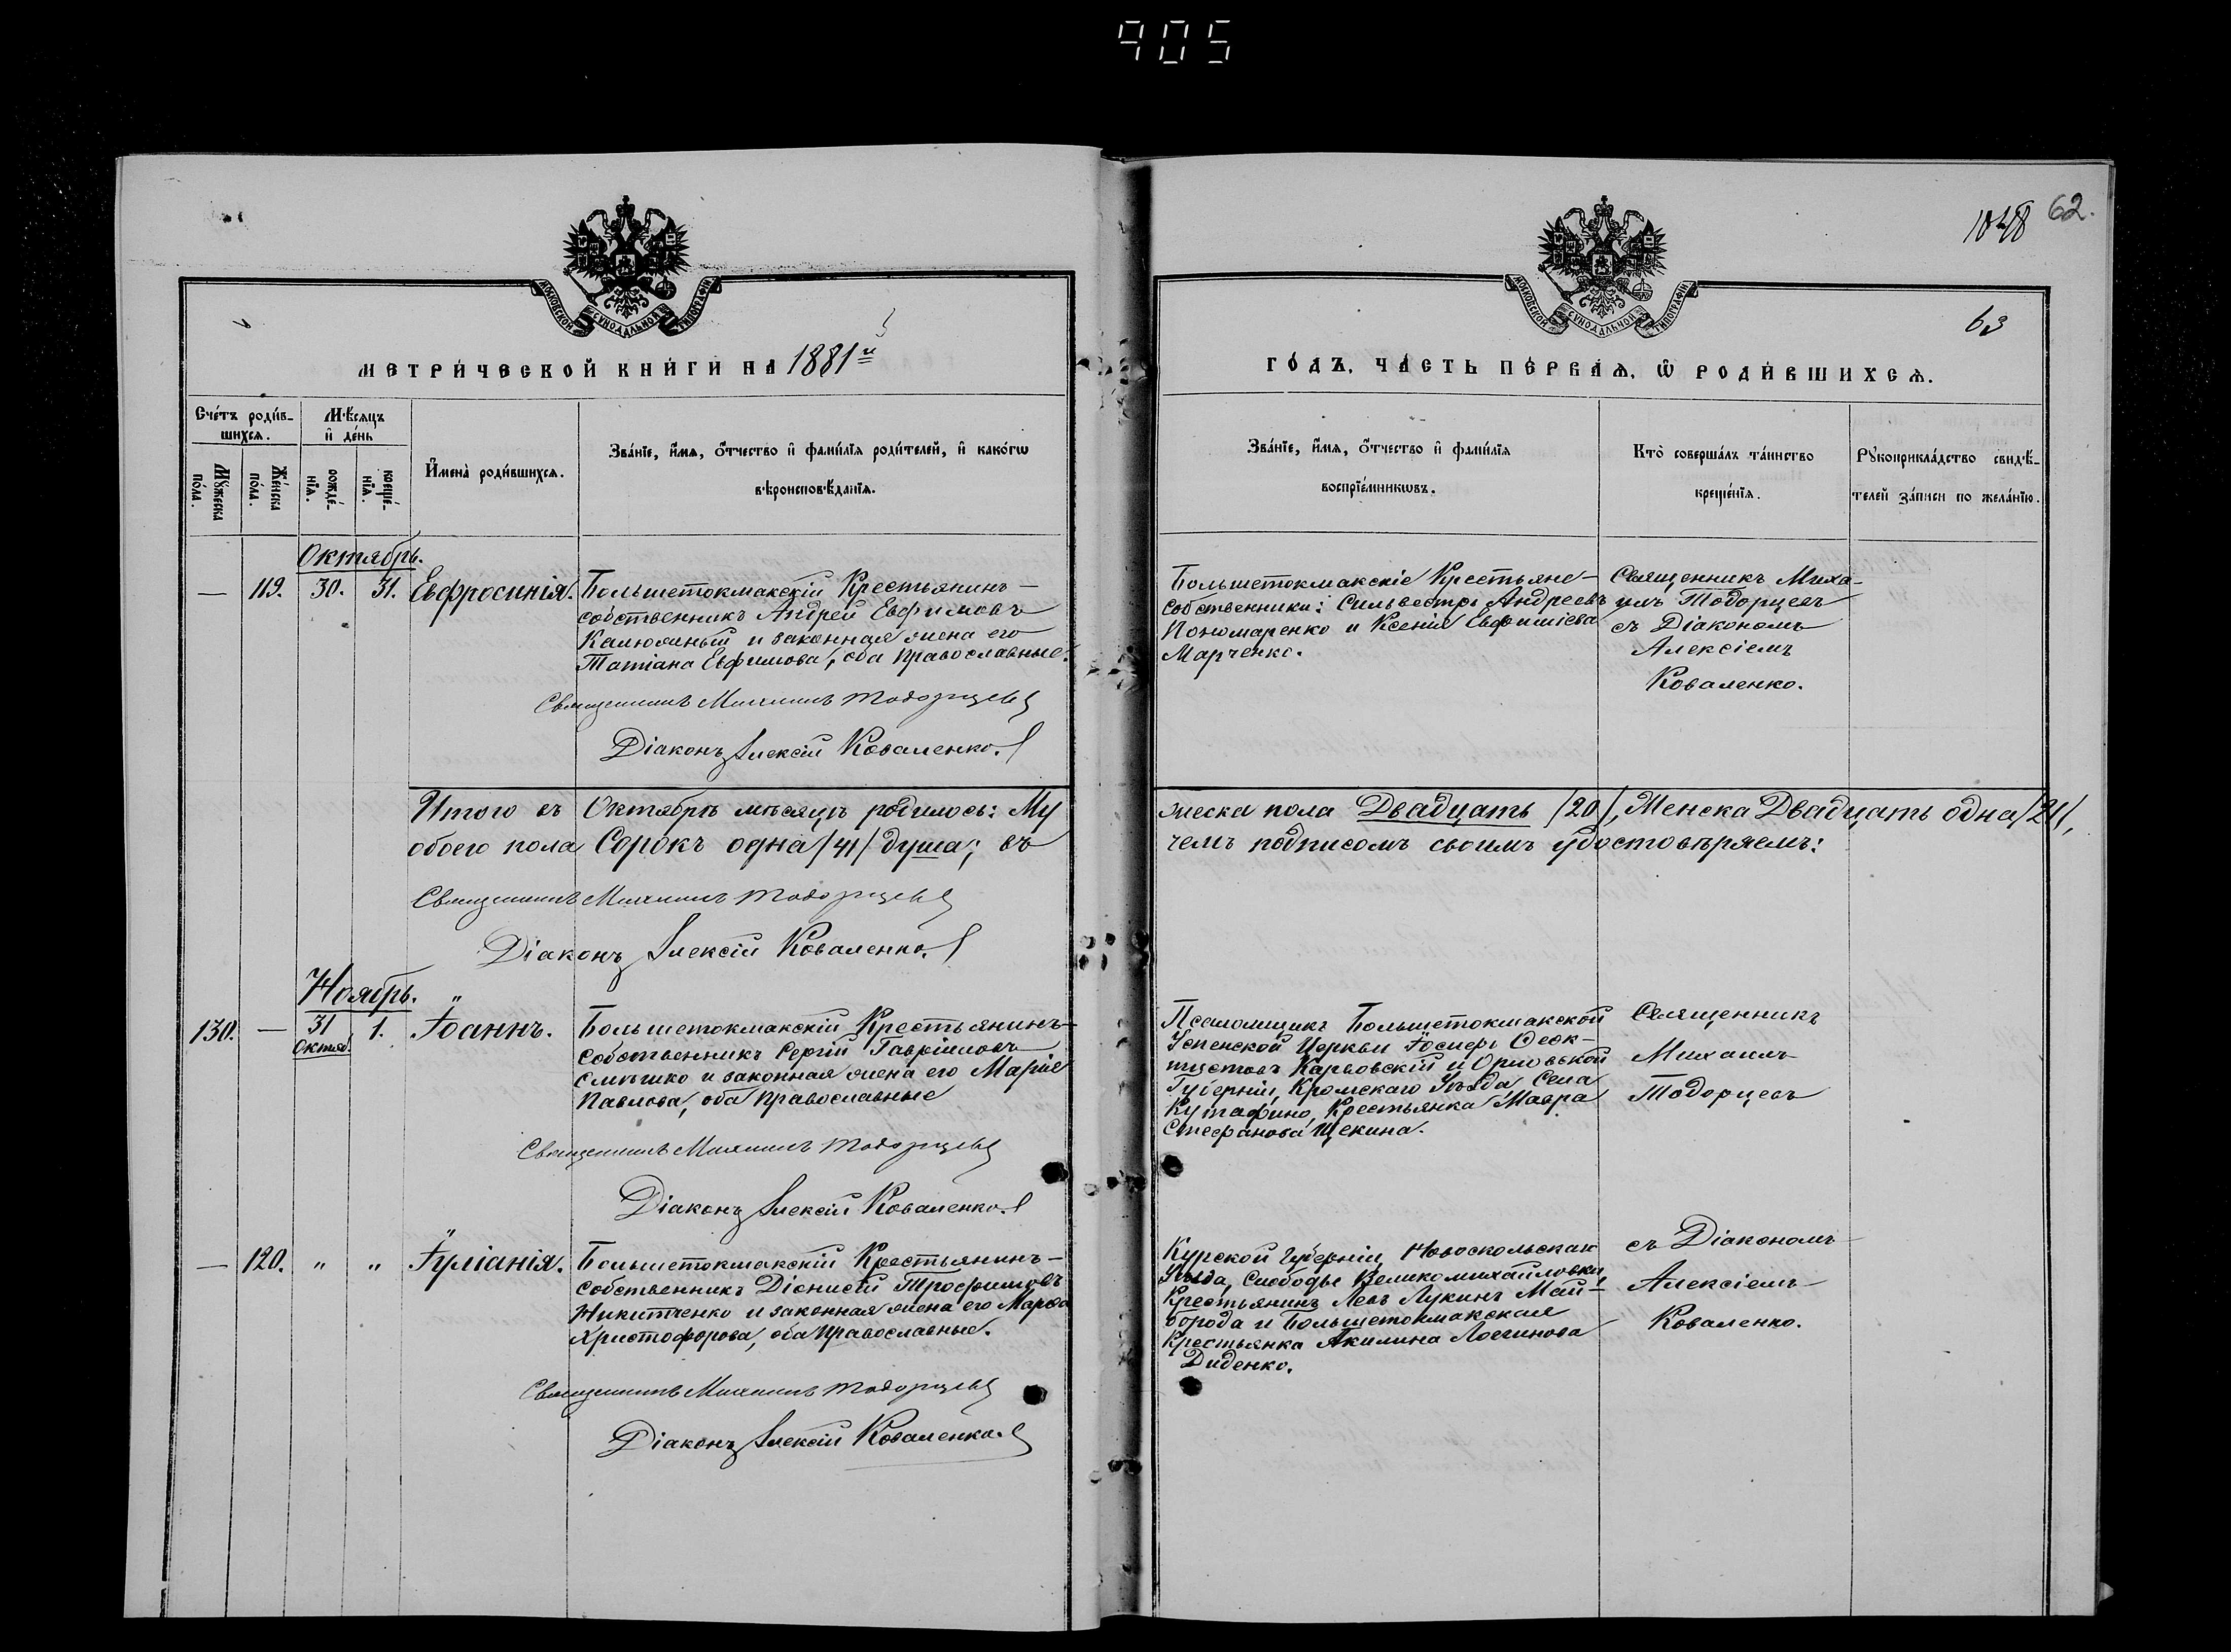 905
1048 62.
МОСКОВСКОЙ СѴНОДАЛЬНОЙ ТИПОГРАФІИ
МОСКОВСКОЙ СѴНОДАЛЬНОЙ ТИПОГРАФІИ
63
МЕТРИ́ЧЕСКОЙ КНИ́ГИ НА 1881й
ГО́ДЪ. ЧА́СТЬ ПЕ́РВАѦ, Ѿ РОДИ́ВШИХСѦ.
Сче́тъ роди́в-
шихсѧ.
Мѣ́сяцъ
и҆ де́нь
Мꙋ́жеска
по́ла.
Же́нска
по́ла.
рожде́-
нїѧ.
креще́-
нїѧ.
И҆мена̀ роди́вшихсѧ.
Зва́нїе, и҆́мѧ, ѻ҆́тчество и҆ фамі́лїѧ роди́телей, и҆ како́гѡ
вѣроисповѣ́данїѧ.
Зва́нїе, и҆́мѧ, ѻ҆́тчество и҆ фамі́лїѧ
воспрїе́мникѡвъ.
Кто̀ соверша́лъ та́инство
креще́нїѧ.
Рꙋкоприкла́дство свидѣ́-
телей за́писи по жела́нїю.
Октябрь.
— 119. 30. 31. Евфросинія. Большетокмакскій Крестьянинъ-
собственникъ Андрей Евфимовъ
и законная жена его
Татіана Евфимова, оба православные.
Священникъ Михаилъ Тодорцевъ
Діаконъ Алексій Коваленко.
Большетокмакскіе Крестьяне-
собственники: Сильвестръ Андреевъ
Пономаренко и Ксенія Евфиміева
Марченко.
Священникъ Миха-
илъ Тодорцевъ
съ Діакономъ
Алексіемъ
Коваленко.
Итого въ Октябрѣ мѣсяцѣ родилось: Му
жеска пола Двадцать /20/, Женска Двадцать одна /21/,
обоего пола Сорокъ одна /41/ душа; въ
чемъ подписомъ своимъ удостовѣряемъ:
Священникъ Михаилъ Тодорцевъ
Діаконъ Алексій Коваленко.
Ноябрь.
130. — 31 1. Іоаннъ. Большетокмакскій Крестьянинъ-
Октяб.
собственникъ Сергій Гавріиловъ
Смѣшко и законная жена его Марія
Павлова, оба православные
Священникъ Михаилъ Тодорцевъ
Діаконъ Алексій Коваленко.
Псаломщикъ Большетокмакской
Успенской Церкви Іосифъ Феок-
тистовъ Карвовскій и Орловской
Губерніи, Кромскаго Уѣзда Села
Кутафино, Крестьянка Мавра
Стефанова Щекина.
Священникъ
Михаилъ
Тодорцевъ
— 120. " " Іуліанія. Большетокмакскій Крестьянинъ-
собственникъ Діонисій Трофимовъ
Никитченко и законная жена его Марфа
Христофорова, оба православные.
Священникъ Михаилъ Тодорцевъ
Діаконъ Алексій Коваленко.
Курской Губерніи, Новоскольскаго
Уѣзда, Слободы Великомихайловки,
Крестьянинъ Левъ Лукинъ Май-
борода и Большетокмакская
Крестьянка Акилина Логгинова
Диденко.
съ Діакономъ
Алексіемъ
Коваленко.